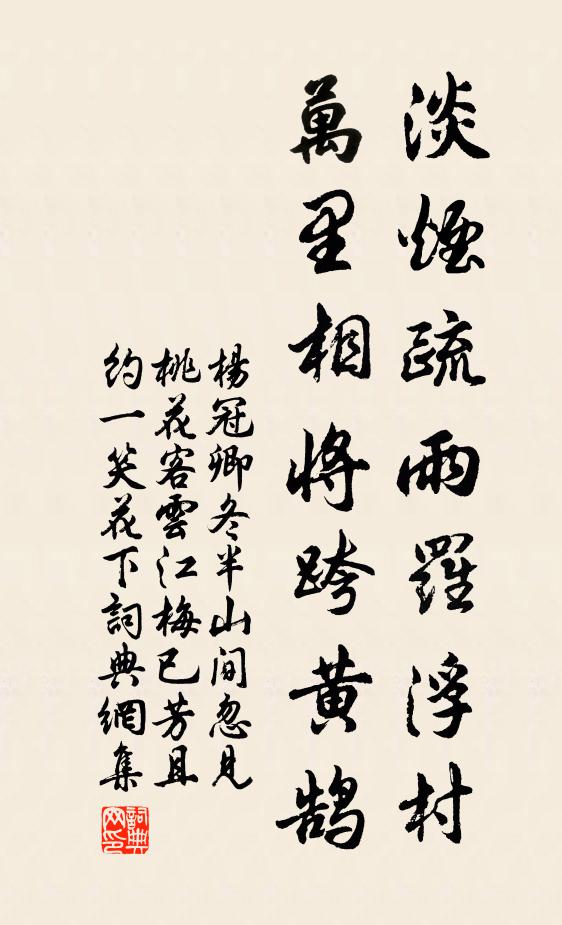 淡煙疏雨羅浮村
萬里相將跨黃鵠
楊冠卿冬半山間忽見
桃花客雲江梅已芳且
約一笑花下詞典網集
詞典網印